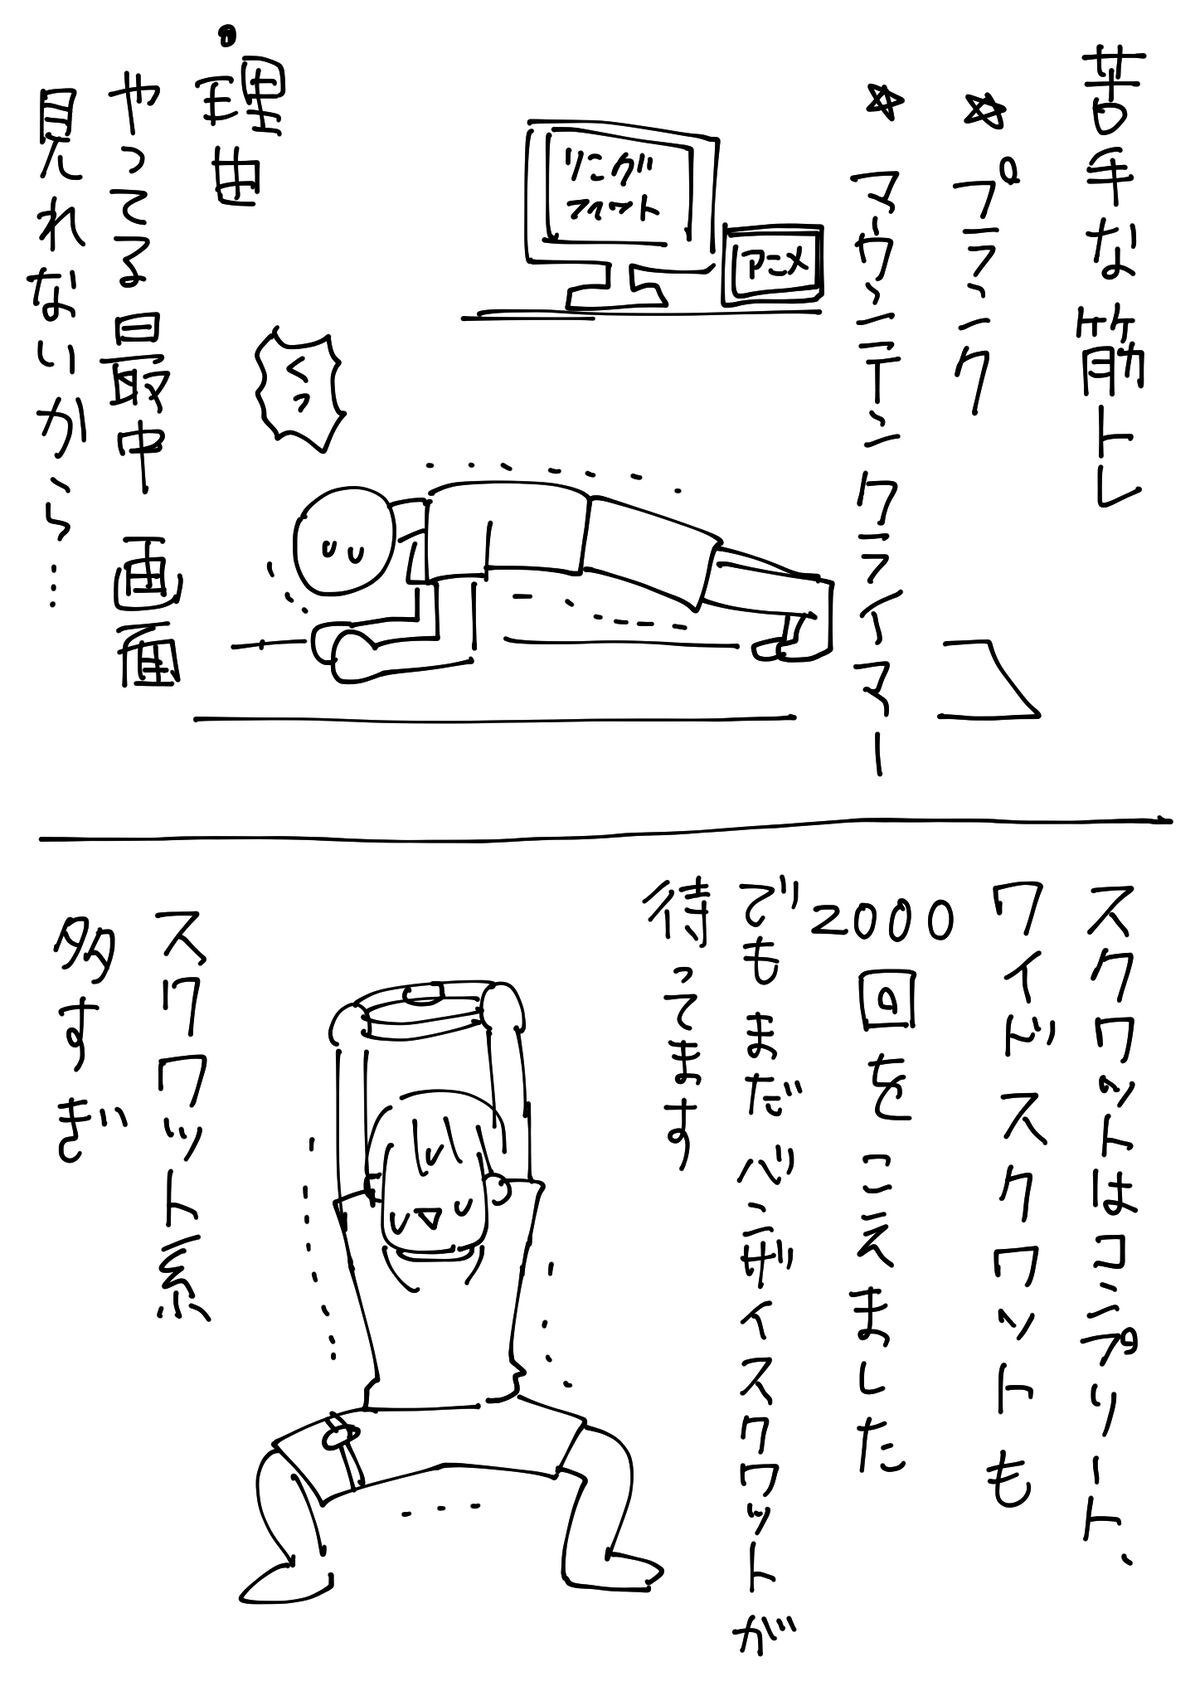 苦手な筋トレ
☆プランク
☆マウンテンクライマー
リング
フィット
アニメ
くっ
・理由
やってる最中画面
見れないから…
スクワットはコンプリート、
ワイドスクワットも
2000回をこえました
でもまだバンザイスクワットが
待ってます
スクワット系
多すぎ